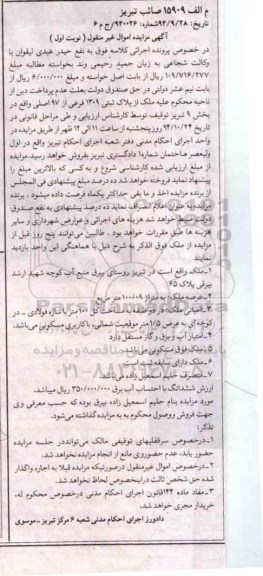 م الف ۱۵۹۰۹ صائب تبریز
تاریخ: ۹۴/۹/۲۸ شماره ۹۳۰۰۲۶/ج م ۶
آگهی مزایده اموال غیر منقول( نوبت اول )
در خصوص پرونده اجرائی کلاسه فوق به نفع حیدر عیدی لیقوان با
وکالت شجاعی به زیان حمید رحیمی وند بخواسته مطالبه مبلغ
۱۰۹/۷۱۶/۲۷۷ ریال از بابت اصل خواسته و مبلغ ۶/۰۰۰/۰۰۰ ریال از
بابت نیم عشر دولتی در حق صندوق دولت بعلت عدم پرداخت دین از
ناحیه محکوم علیه ملک از پلاک ثبتی ۱۳۰۹ فرعی از ۹۷ اصلی واقع در
بخش ۹ تبریز توقیف توسط کارشناس ارزیابی و طی مراحل قانونی در
تاریخ ۹۴/۱۰/۲۴ روز پنجشنبه از ساعت ۱۱ الی ۱۲ ظهر از طریق مزایده در
واحد اجرای احکام مدنی دفتر شعبه اجرای احکام تبریز واقع در اول
ولیعصر ساختمان شماره۱ دادگستری تبریز بفروش خواهد رسید.مزایده
از مبلغ ارزیابی شده کارشناسی شروع و به کسی که بالاترین مبلغ را
پیشنهاد نماید فروخته خواهد شد ده درصد مبلغ پیشنهادی فی المجلس
از برنده مزایده اخذ و ما بقی حداکثر یکماه فرصت داده میشود . برنده
مزایده به عنوان اعلام انصراف نماید ده درصد پیشنهادی به نفع صندوق
دولت ضبط خواهد شد هزینه های اجرائی و عوارض شهرداری و سایر
هزینه ها طبق مقررات خواهد بود . طالبین می‌توانند پنج روز قبل از
مزایده از ملک فوق الذکر به شرح ذیل با هماهنگی این واحد بازدید
نمایند
۱-ملک واقع است در تبریز روستای بیرق منبع آب کوچه شهید ارشد
بیرقی پلاک ۴۵
۲-عرصه ملک: به متراژ ۱۰۰/۰۹ متر مربع
۳-اعیانی ملک: در دو طبقه به مساحت کل ۱۰۰ متر با سازه فولادی . در
کوچه ای به عرض ۱/۵ متر موقعیت شمالی، با کاربری مسکونی می باشد.
۴-امتیاز آب و برق و گاز مستقل دارد
۵-ملک فوق مسکونی می باشد
۶-ملک دارای سابقه ثبت است
۷-متصرف حلیم اسمعیل زاده می باشد
ارزش ششدانگ با احتساب آب برق ۳۵۰/۰۰۰/۰۰۰ ریال میباشد.
مورد مزایده بنام حلیم اسمعیل زاده بیرق بوده که حسب معرفی وی
جهت فروش و وصول محکوم به به مزایده گذاشته می‌شود.
تذکر:
۱-درخصوص سرقفلیهای توقیفی مالک می‌تواند در جلسه مزایده
حضور یابد، عدم حضور وی مانع از انجام مزایده نخواهد شد.
۲-درخصوص اموال غیرمنقول درصورتیکه مزایده قبلا به اجاره واگذار
شده حق شخص ثالث دراینخصوص لحاظ نخواهد شد.
۳-مفاد ماده ۱۴۴ قانون اجرای احکام مدنی درخصوص محکوم له،
خریدار مجری خواهد شد.
دادورز اجرای احکام مدنی شعبه ۶ مرکز تبریز -موسوی